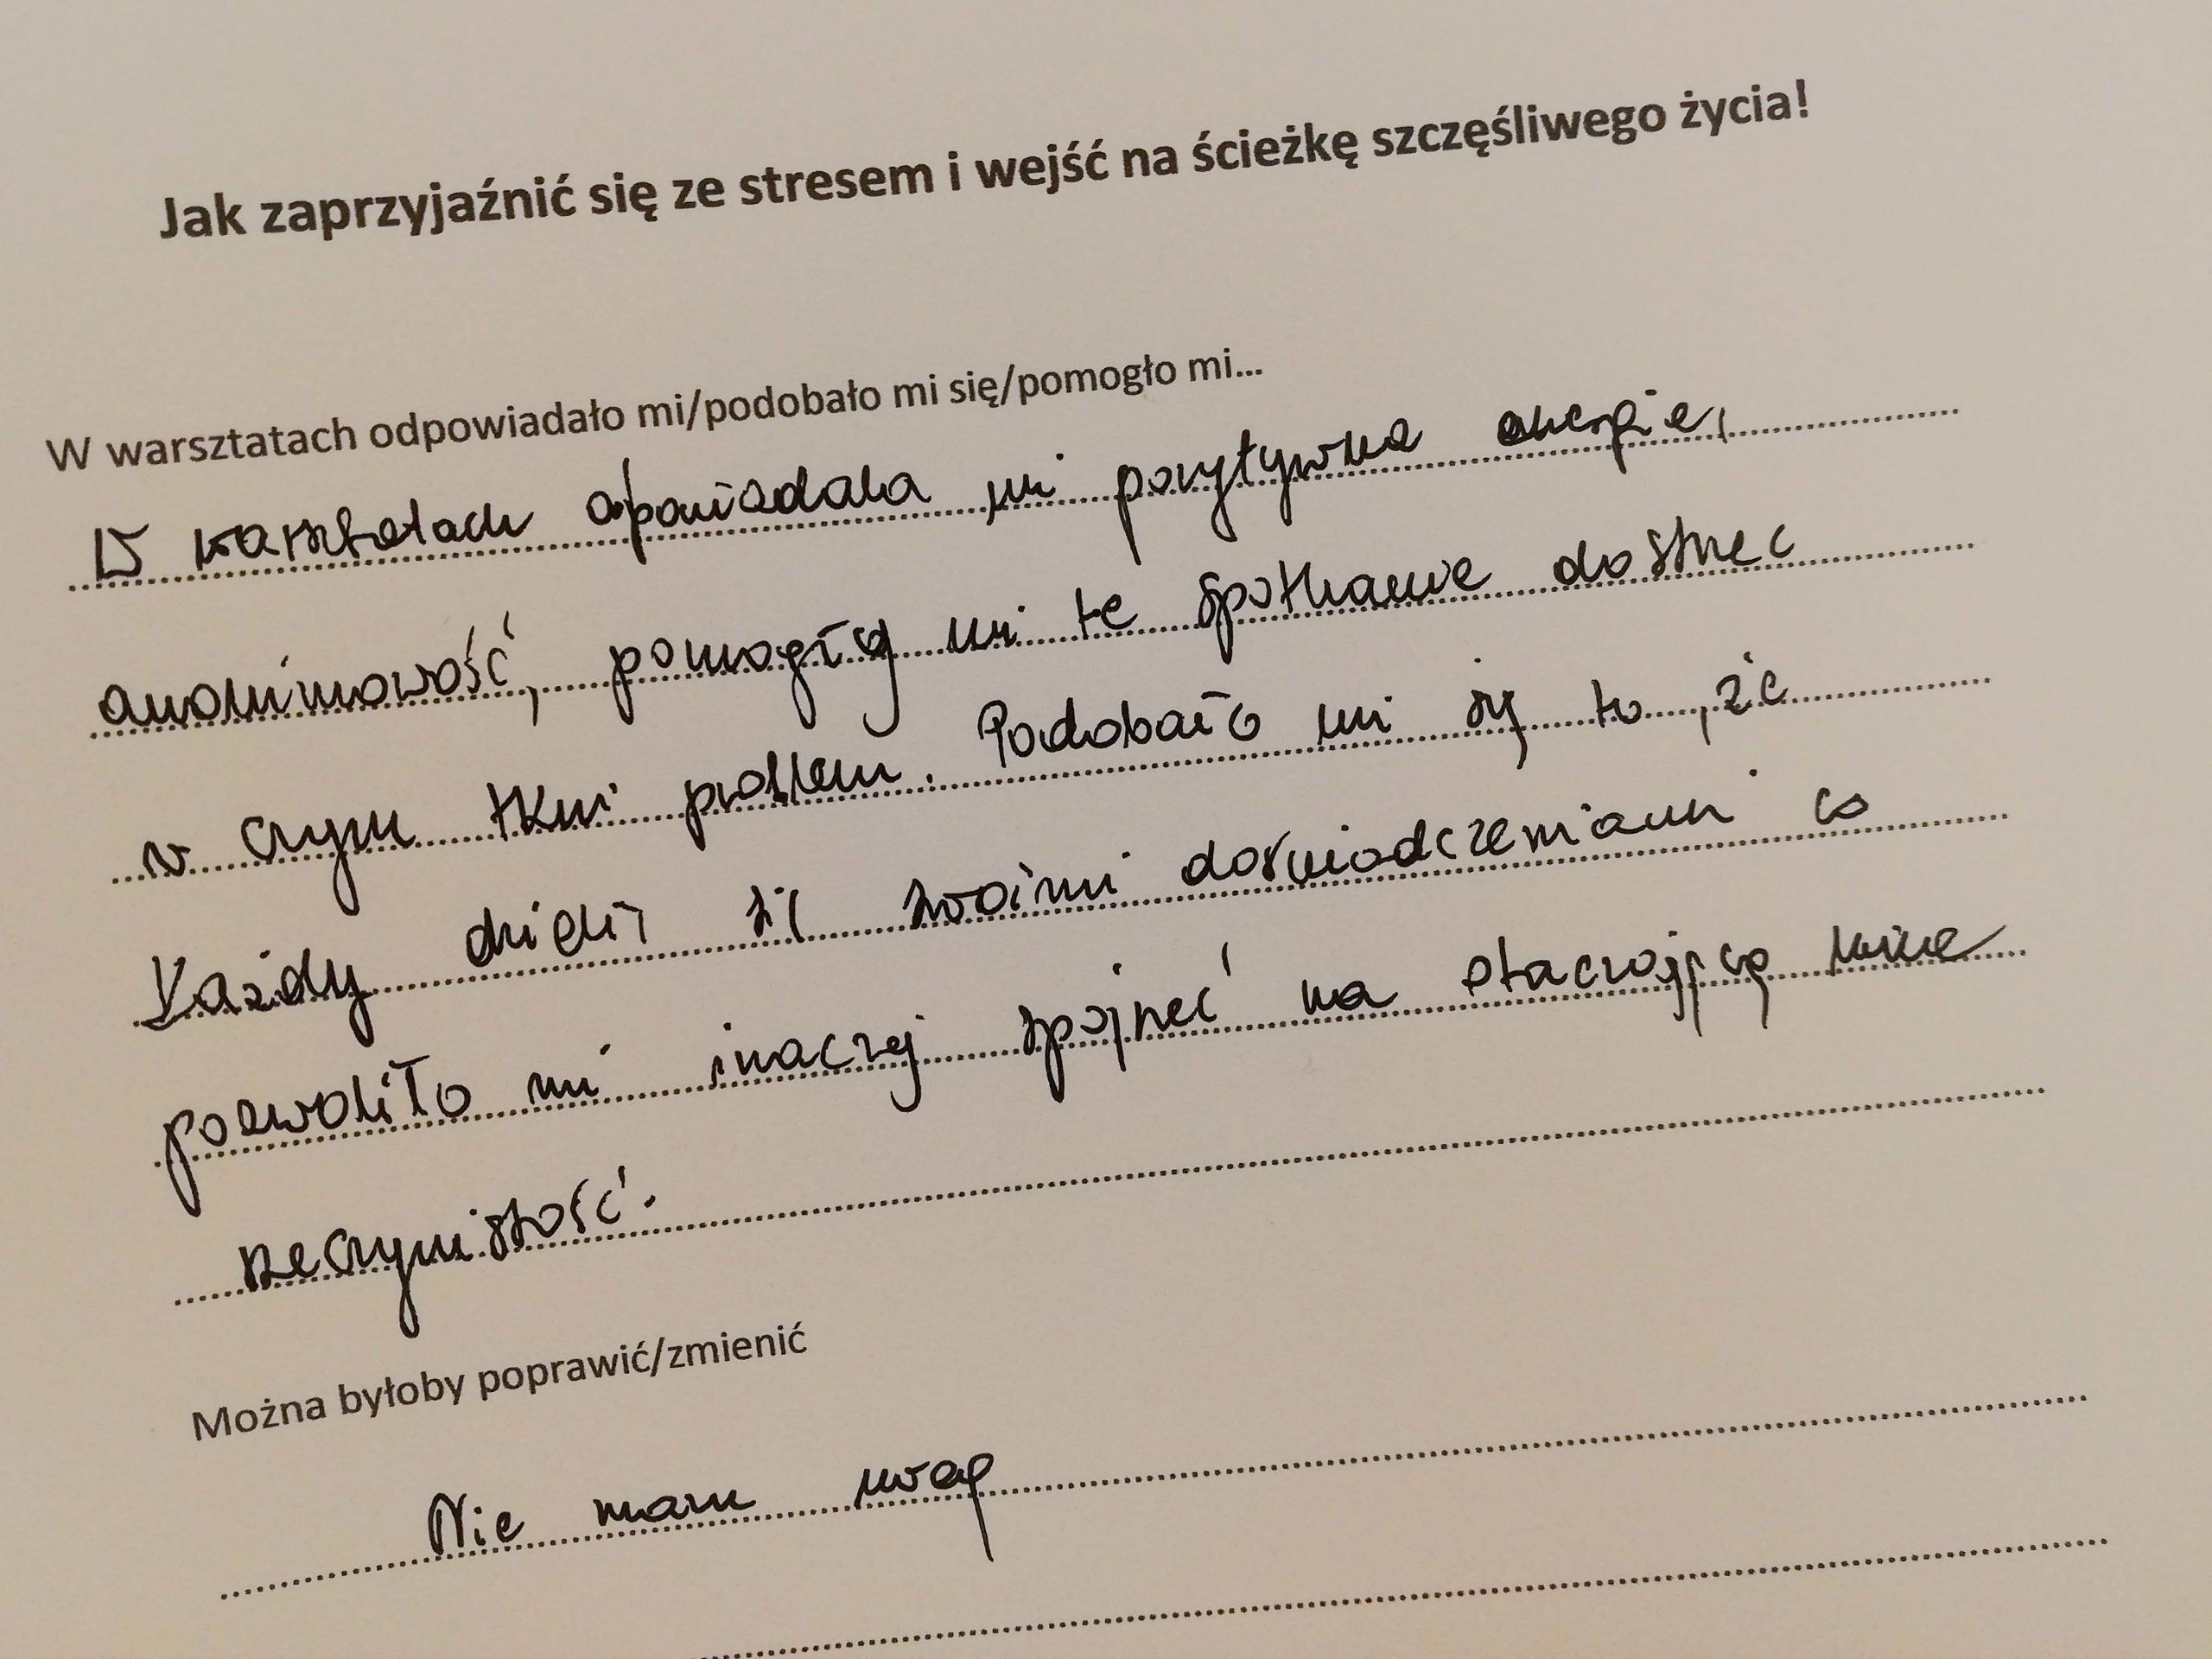 Jak zaprzyjaźnić się ze stresem i wejść na ścieżkę szczęśliwego życia!
W warsztatach odpowiadało mi/podobało mi się/pomogło mi...
W warsztatach opowiadała mi pozytywna energia,
anonimowość, pomogły mi te spotkanie dostrzec
w czym tkwi problem. Podobało mi się to, że
Każdy dzielił się swoimi doświadczeniami co
pozwoliło mi inaczej spojrzeć na otaczającą mnie
rzeczywistość.
Można byłoby poprawić/zmienić
Nie mam uwag